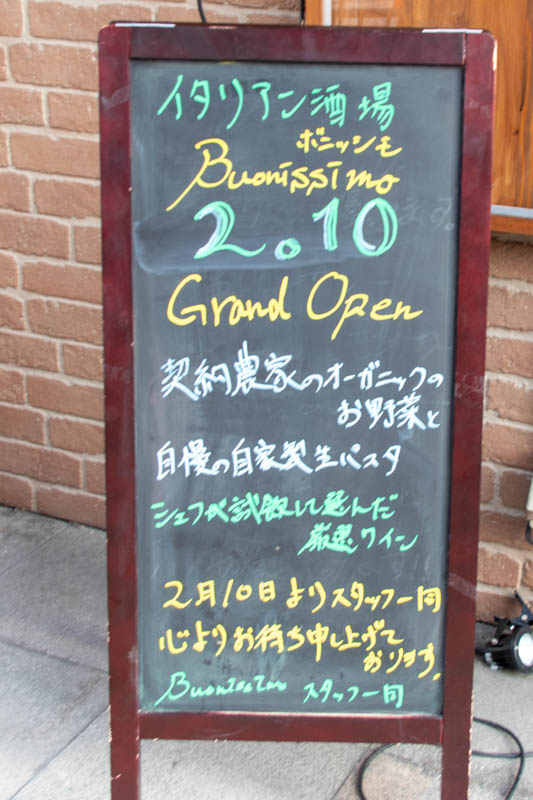 イタリアン酒場
ボニッシモ
Buonissimo
2.10
Grand Open
契約農家のオーガニックの
お野菜と
自慢の自家製生パスタ
シェフが試飲して選んだ
厳選ワイン
2月10日よりスタッフ一同
心よりお待ち申し上げて
おります。
Buonissimo スタッフ一同